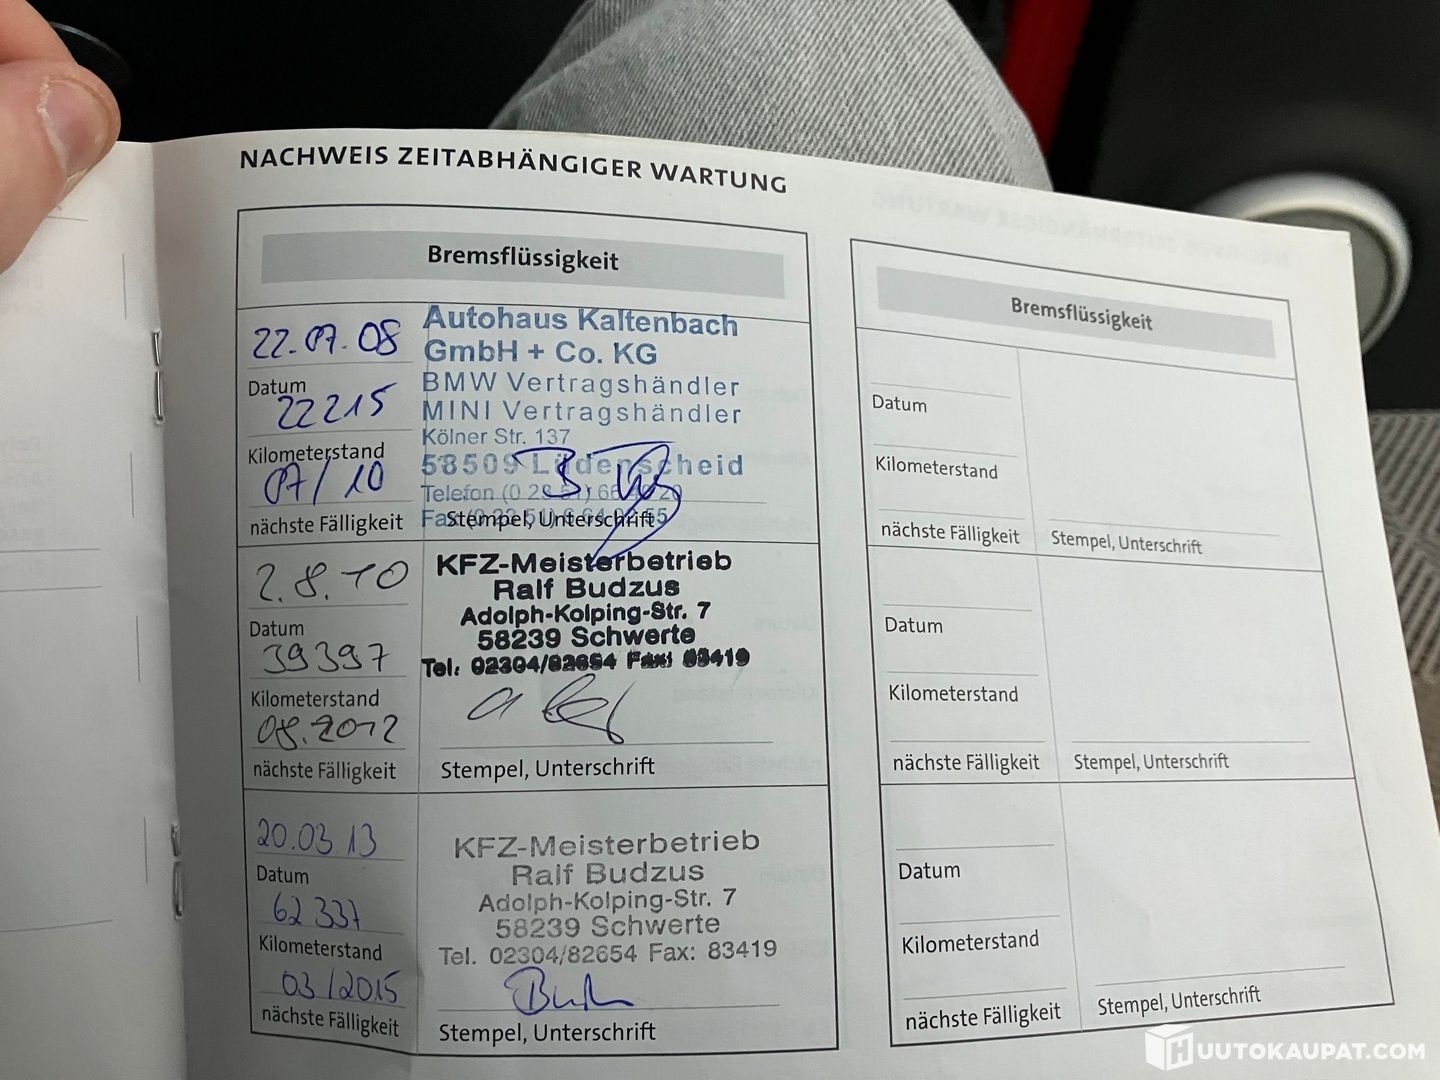 NACHWEIS ZEITABHÄNGIGER WARTUNG
Bremsflüssigkeit
22.07.08
Datum
22215
Kilometerstand
07/10
nächste Fälligkeit
Autohaus Kaltenbach
GmbH + Co. KG
BMW Vertragshändler
MINI Vertragshändler
Kölner Str. 137
58509 Lüdenscheid
Telefon
Fax
Stempel, Unterschrift
2.8.10
Datum
39397
Kilometerstand
08.2012
nächste Fälligkeit
KFZ-Meisterbetrieb
Ralf Budzus
Adolph-Kolping-Str. 7
58239 Schwerte
Tel. 02304/82654 Fax: 83419
Stempel, Unterschrift
20.03.13
Datum
62337
Kilometerstand
03/2015
nächste Fälligkeit
KFZ-Meisterbetrieb
Ralf Budzus
Adolph-Kolping-Str. 7
58239 Schwerte
Tel. 02304/82654 Fax: 83419
Stempel, Unterschrift
Bremsflüssigkeit
Datum
Kilometerstand
nächste Fälligkeit
Stempel, Unterschrift
Datum
Kilometerstand
nächste Fälligkeit
Stempel, Unterschrift
Datum
Kilometerstand
nächste Fälligkeit
Stempel, Unterschrift
HUUTOKAUPAT.COM